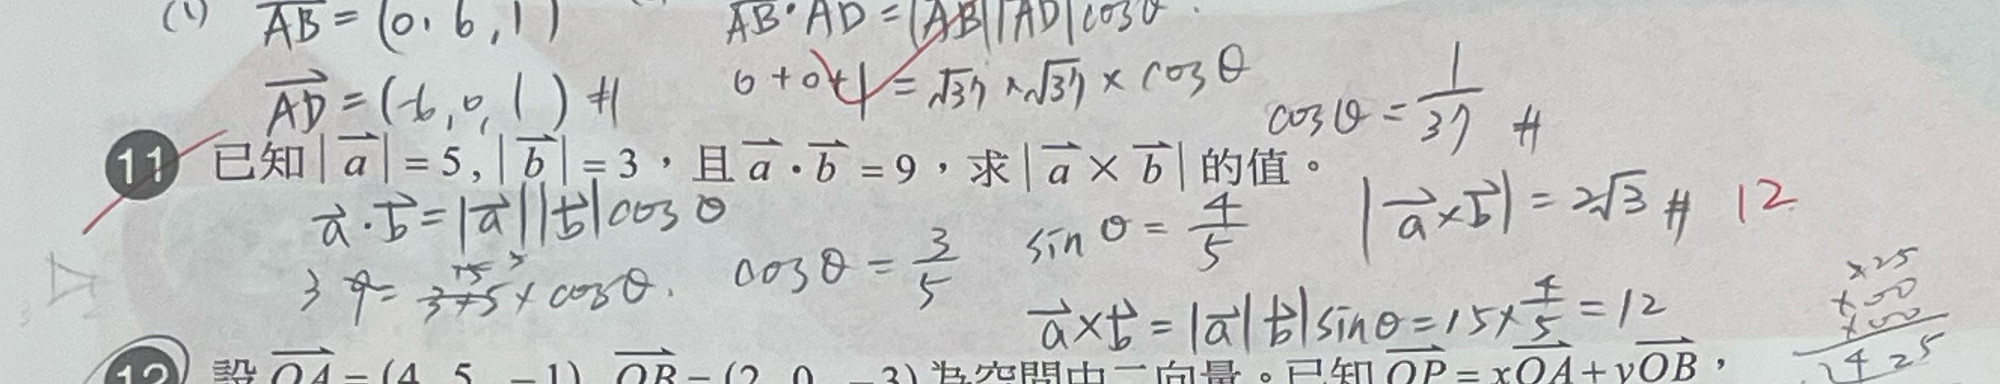 (1) AB = (0, 6, 1)
AB · AD = |AB||AD|cosθ
AD = (-6, 0, 1) #
0 + 0 + 1 = √37 × √37 × cosθ
cosθ = 1/37 #
11 已知|a| = 5, |b| = 3，且a · b = 9，求|a × b|的值。
a · b = |a||b|cosθ
sinθ = 4/5
|a × b| = 2√3 # 12
cosθ = 3/5
a × b = |a||b|sinθ = 15 × 4/5 = 12
12 設OA = (4, 5, -1) OB = (2, 0, -3)為空間中二向量。已知OP = xOA + yOB，